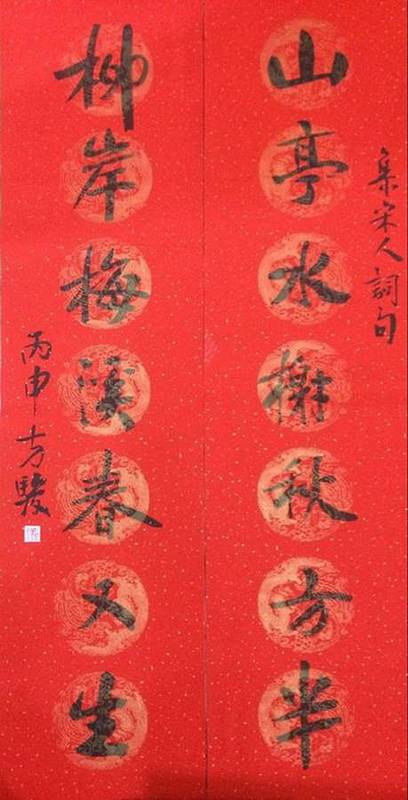 集宋人詞句
山亭水榭秋方半
柳岸梅溪春又生
丙申 方駿